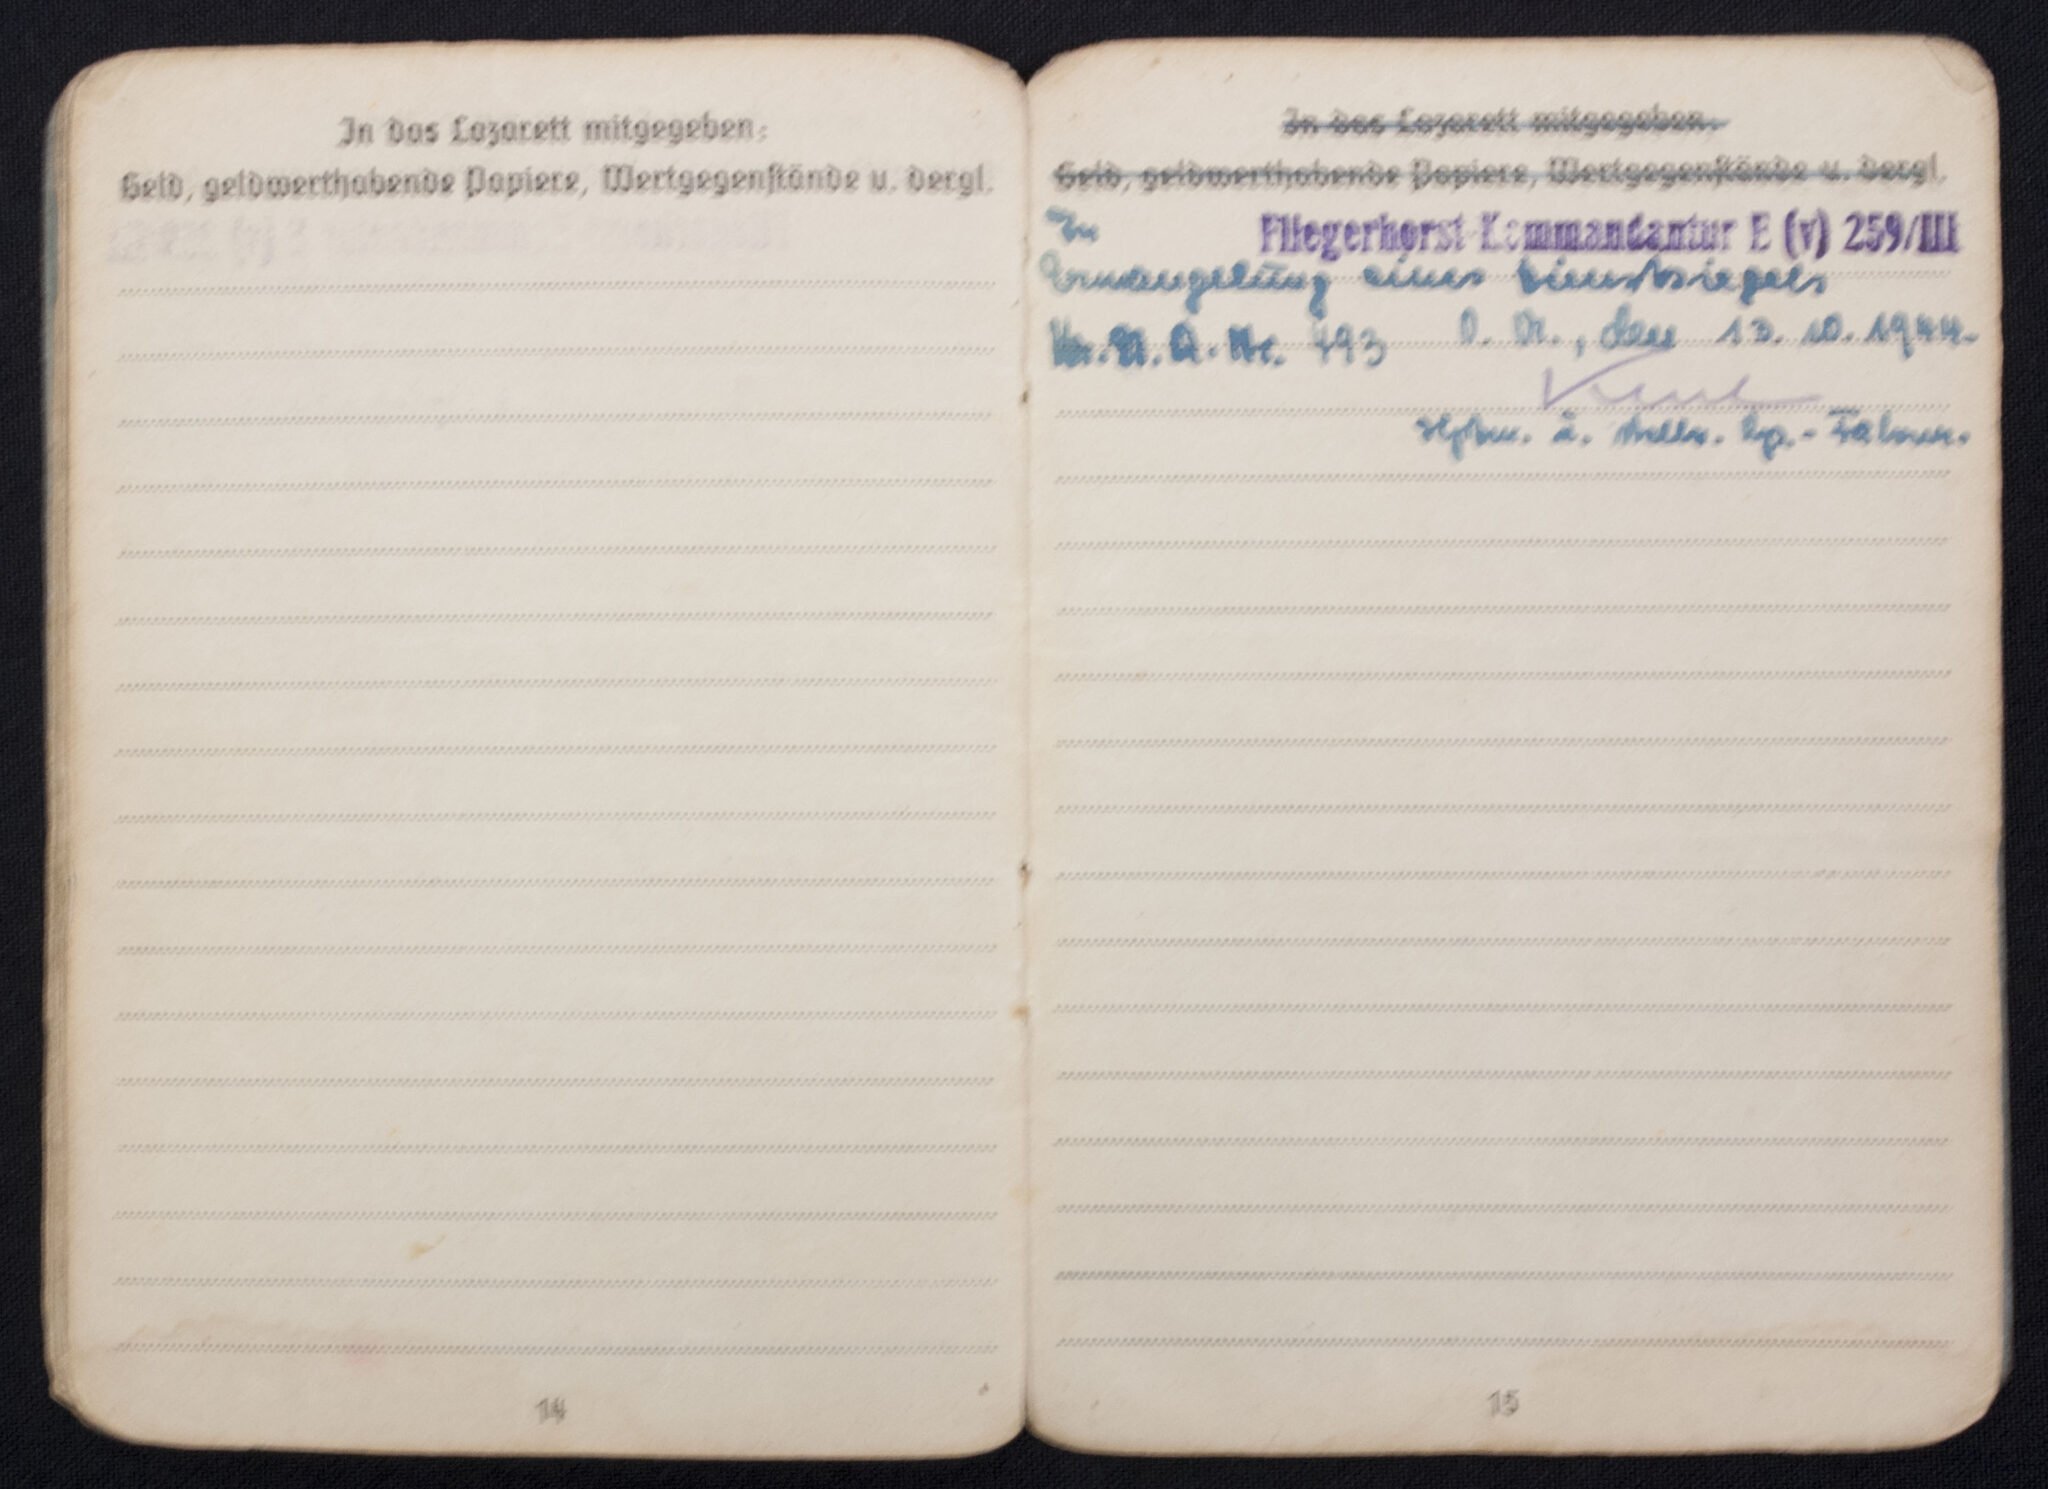 In das Lazarett mitgegeben:
Geld, geldwerthabende Papiere, Wertgegenstände u. dergl.
14
In das Lazarett mitgegeben.
Geld, geldwerthabende Papiere, Wertgegenstände u. dergl.
In Fliegerhorst-Kommandantur E (v) 259/III
Ermangelung eines Dienstsiegels
Nr. 493 O. U., den 13. 10. 1944.
Hptm. u. stellv. Kp.-
15